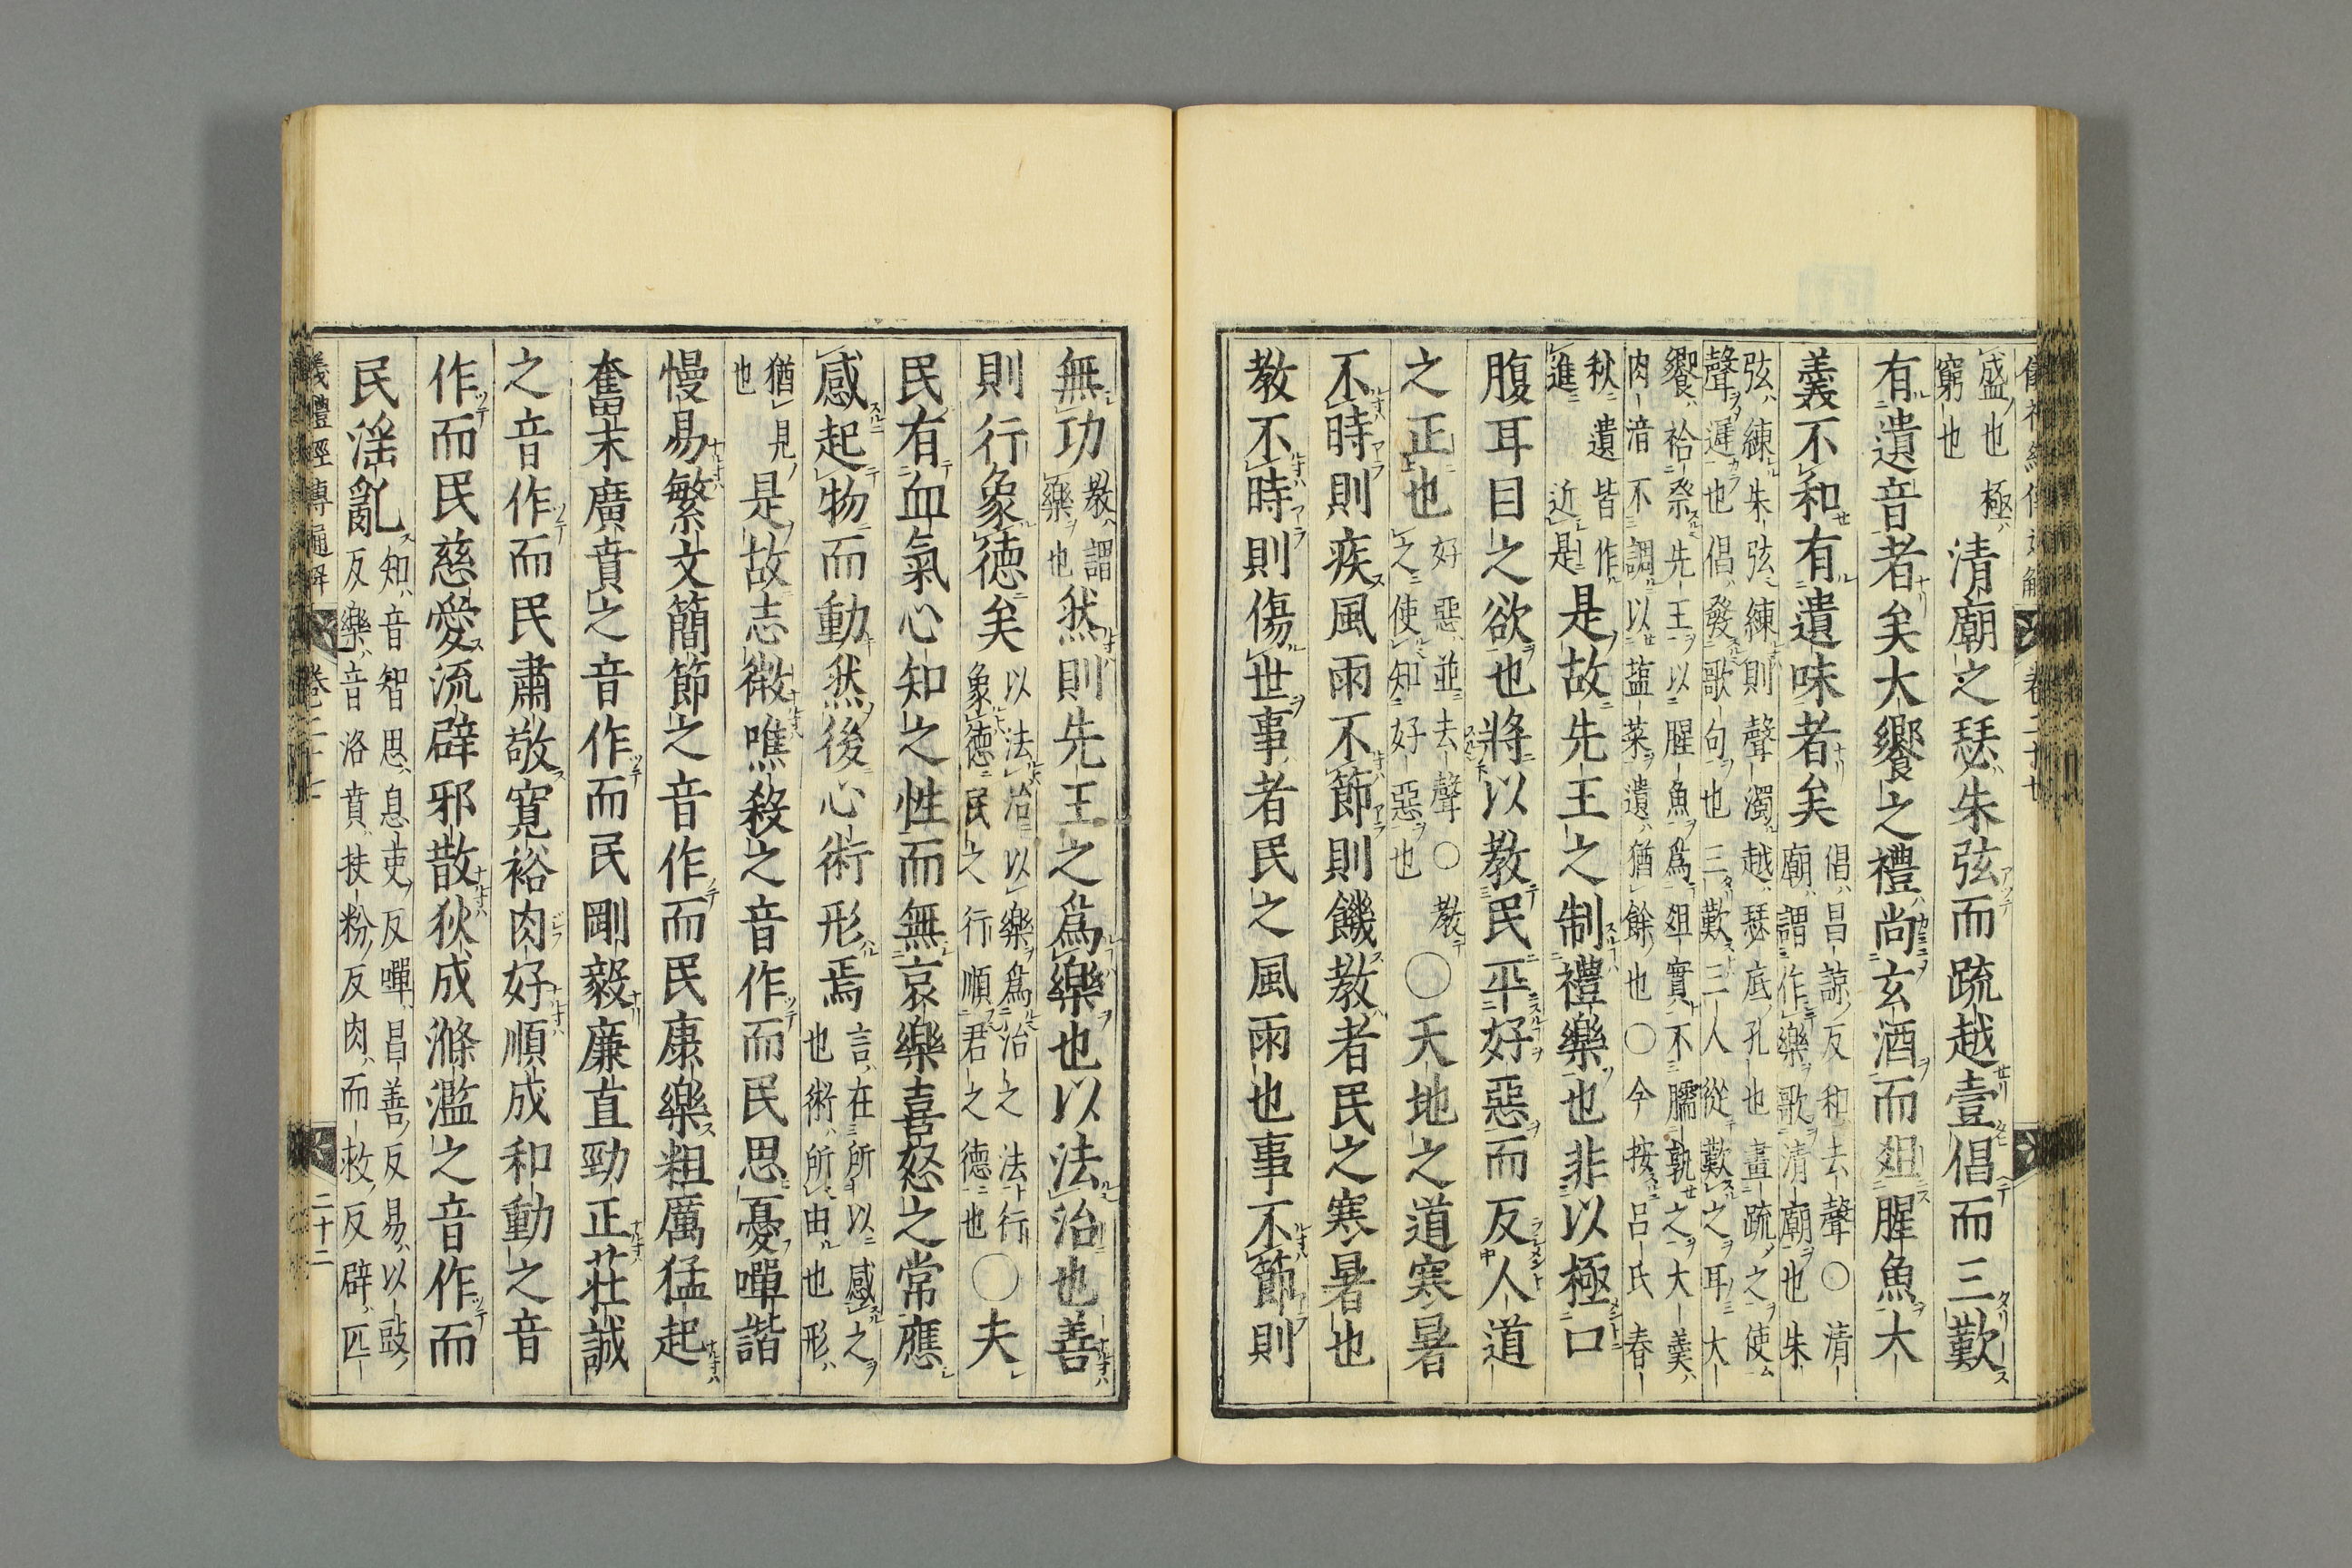 盛也極
窮也
清廟之瑟朱弦而疏越壹倡而三歎
有遺音者矣大饗之禮尚玄酒而俎腥魚大
羹不和有遺味者矣
倡昌諒反和去聲〇清
廟謂作樂歌清廟也朱
弦練朱弦練則聲濁越瑟底孔也畫疏之使
聲遲也倡發歌句也三歎三人從歎之耳大
饗祫祭先王以腥魚爲俎實不臑孰之大羹
肉湆不調以盐菜遺猶餘也〇今按呂氏春
秋遺皆作
進近是
是故先王之制禮樂也非以極口
腹耳目之欲也將以教民平好惡而反人道
之正也
好惡並去聲〇教
之使知好惡也
〇天地之道寒暑
不時則疾風雨不節則饑教者民之寒暑也
教不時則傷世事者民之風雨也事不節則
無功
教謂
樂也
然則先王之爲樂也以法治也善
則行象德矣
以法治以樂爲治之法行
象德民之行順君之德也
〇夫
民有血氣心知之性而無哀樂喜怒之常應
感起物而動然後心術形焉
言在所以感之
也術所由也形
猶見
也
是故志微噍殺之音作而民思憂嘽諧
慢易繁文簡節之音作而民康樂粗厲猛起
奮末廣賁之音作而民剛毅廉直勁正莊誠
之音作而民肅敬寬裕肉好順成和動之音
作而民慈愛流辟邪散狄成滌濫之音作而
民淫亂
知音智思息吏反嘽昌善反易以豉
反樂音洛賁扶粉反肉而救反辟匹
儀禮經傳通解
卷二十七
二十二